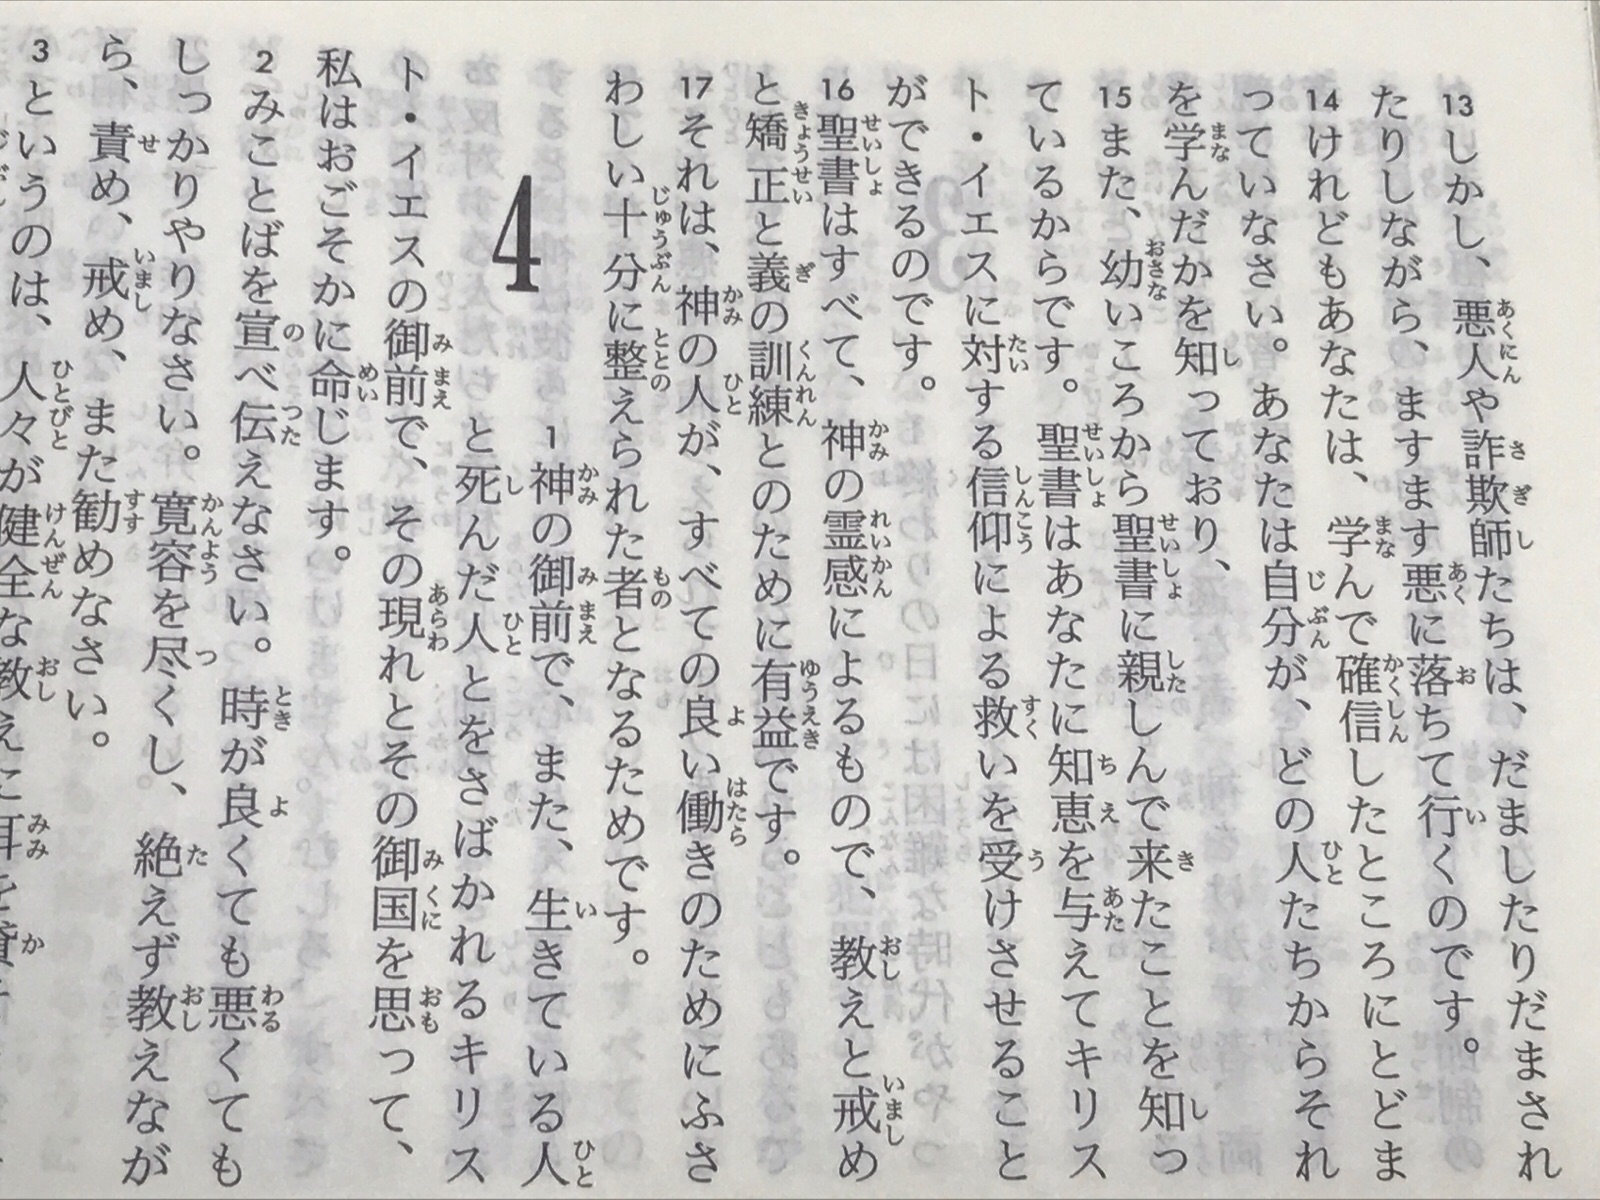 13しかし、悪人や詐欺師たちは、だましたりだまされ
たりしながら、ますます悪に落ちて行くのです。
14けれどもあなたは、学んで確信したところにとどま
っていなさい。あなたは自分が、どの人たちからそれ
を学んだかを知っており、
15また、幼いころから聖書に親しんで来たことを知っ
ているからです。聖書はあなたに知恵を与えてキリス
ト・イエスに対する信仰による救いを受けさせること
ができるのです。
16聖書はすべて、神の霊感によるもので、教えと戒め
と矯正と義の訓練とのために有益です。
17それは、神の人が、すべての良い働きのためにふさ
わしい十分に整えられた者となるためです。
4
1神の御前で、また、生きている人
と死んだ人とをさばかれるキリス
ト・イエスの御前で、その現れとその御国を思って、
私はおごそかに命じます。
2みことばを宣べ伝えなさい。時が良くても悪くても
しっかりやりなさい。寛容を尽くし、絶えず教えなが
ら、責め、戒め、また勧めなさい。
3というのは、人々が健全な教えに耳を貸